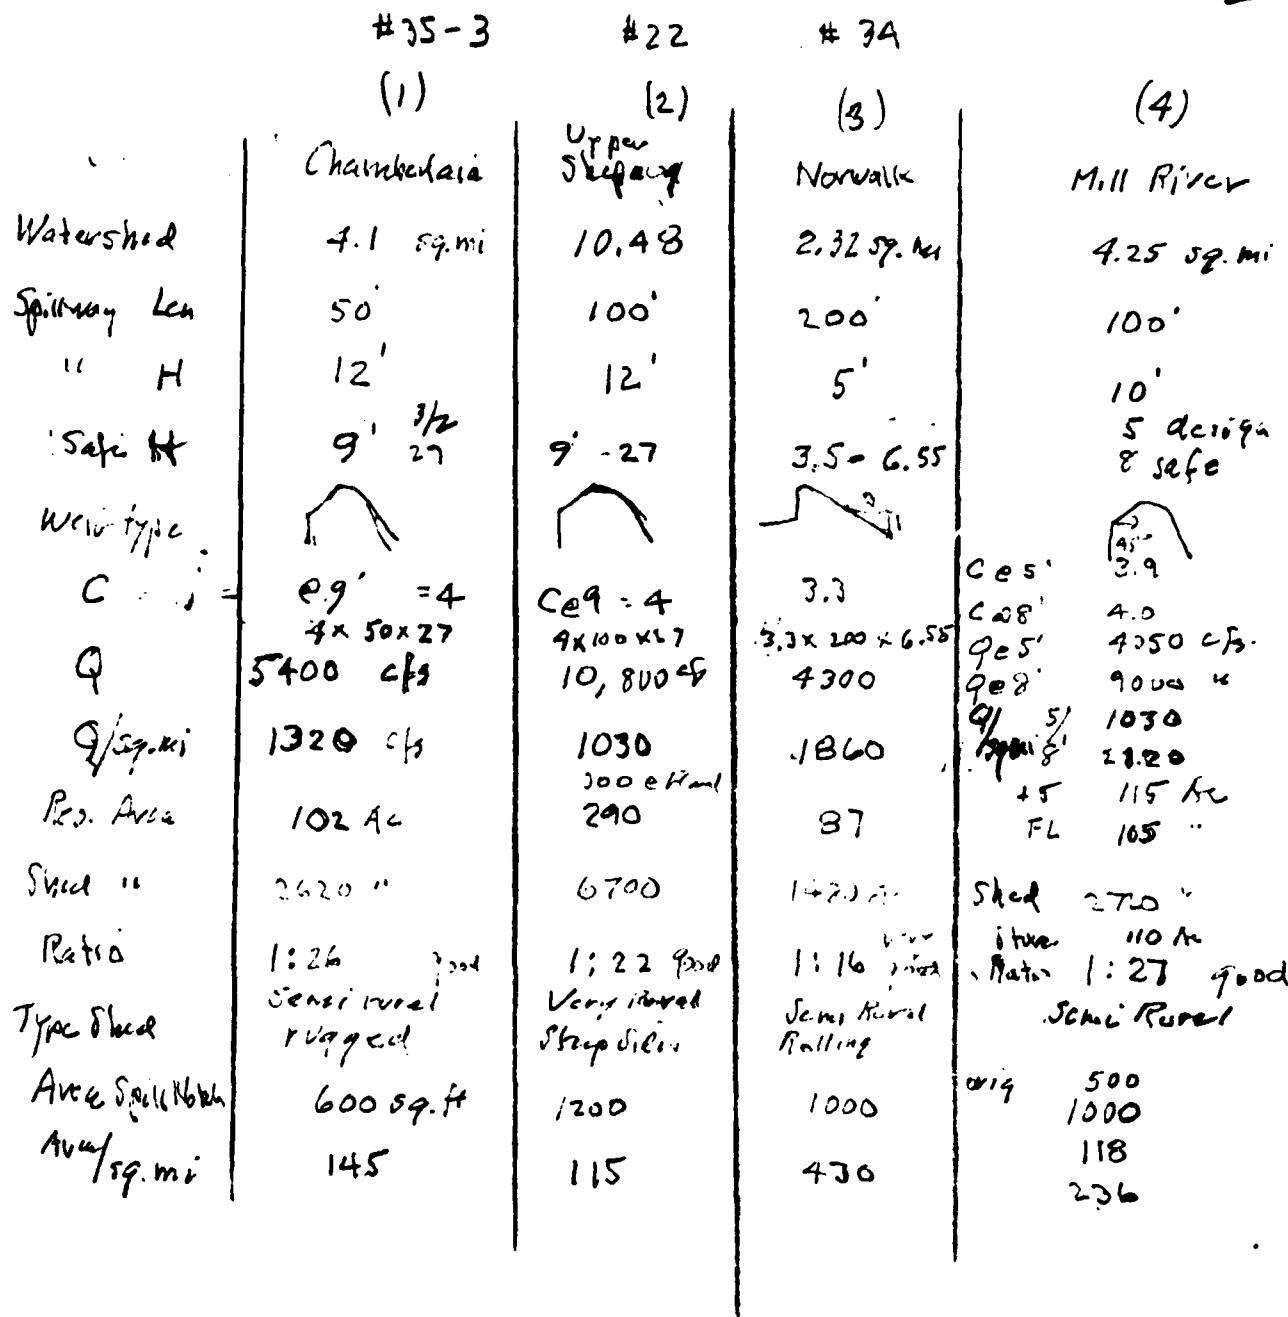 #35-3 #22 #34
(1) (2) (3) (4)
Chamberlain Upper Shepaug Norwalk Mill River
Watershed 4.1 sq.mi 10.48 2.32 sq. mi 4.25 sq. mi
Spillway Len 50' 100' 200' 100'
" H 12' 12' 5' 10'
Safe H 9' 3/2 27 9' - 27 3.5 - 6.55 5 design
8 safe
Weir type 45°
C @ 9' = 4 C@9 = 4 3.3 C@5' 3.9
C@8' 4.0
4 x 50 x 27 4x100x27 3.3 x 200 x 6.55
Q 5400 cfs 10,800 cfs 4300 Q@5' 4350 cfs.
Q@8' 9000 "
Q/sq.mi 1320 cfs 1030 1860 Q/sqmi 5' 1030
8' 2120
Res. Area 102 Ac 290 87 +5 115 Ac
FL 105 "
Shed " 2620 " 6700 1480 Ac Shed 2720 "
110 Ac
Ratio 1:26 good 1:22 good 1:16 Ratio 1:27 good
Type Shed Semi rural rugged Very Rural Semi Rural Rolling Semi Rural
Area Spill Notch 600 sq.ft 1200 1000 orig 500
1000
Area/sq.mi 145 115 430 118
236